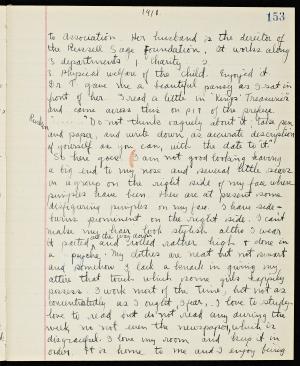 1911.
153
to Association. Her husband is the director of
the Russell Sage Foundation. It works along
3 departments, 1 Charity 2
3 Physical welfare of the Child. Enjoyed it
Dr T gave me a beautiful pansy as I sat in
front of her. I read a little in "Kings Treasuries"
and came across this on p 17 of the preface
Ruskin
"----- "Do not think vaguely about it; take pen
and paper, and write down as accurate description
of yourself as you can, with the date to it."
So here goes! I am not good looking having
a big end to my nose and several little scars
in a group on the right side of my face where
pimples have been. There are at present some
disfiguring pimples on my face. I have side-
burns prominent on the right side. I can't
make my hair look stylish altho I wear
it parted all the way down and rolled rather high & done in
a psyche. My clothes are neat but not smart
and somehow I lack a knack in giving my
attire that touch which some girls happily
possess. I work most of the time, but not as
concentratedly as I ought, I fear. I love to study-
love to read but do not read any during the
week, no not even the newspaper, which is
disgraceful. I love my room and keep it in
order. It is home to me and I enjoy being